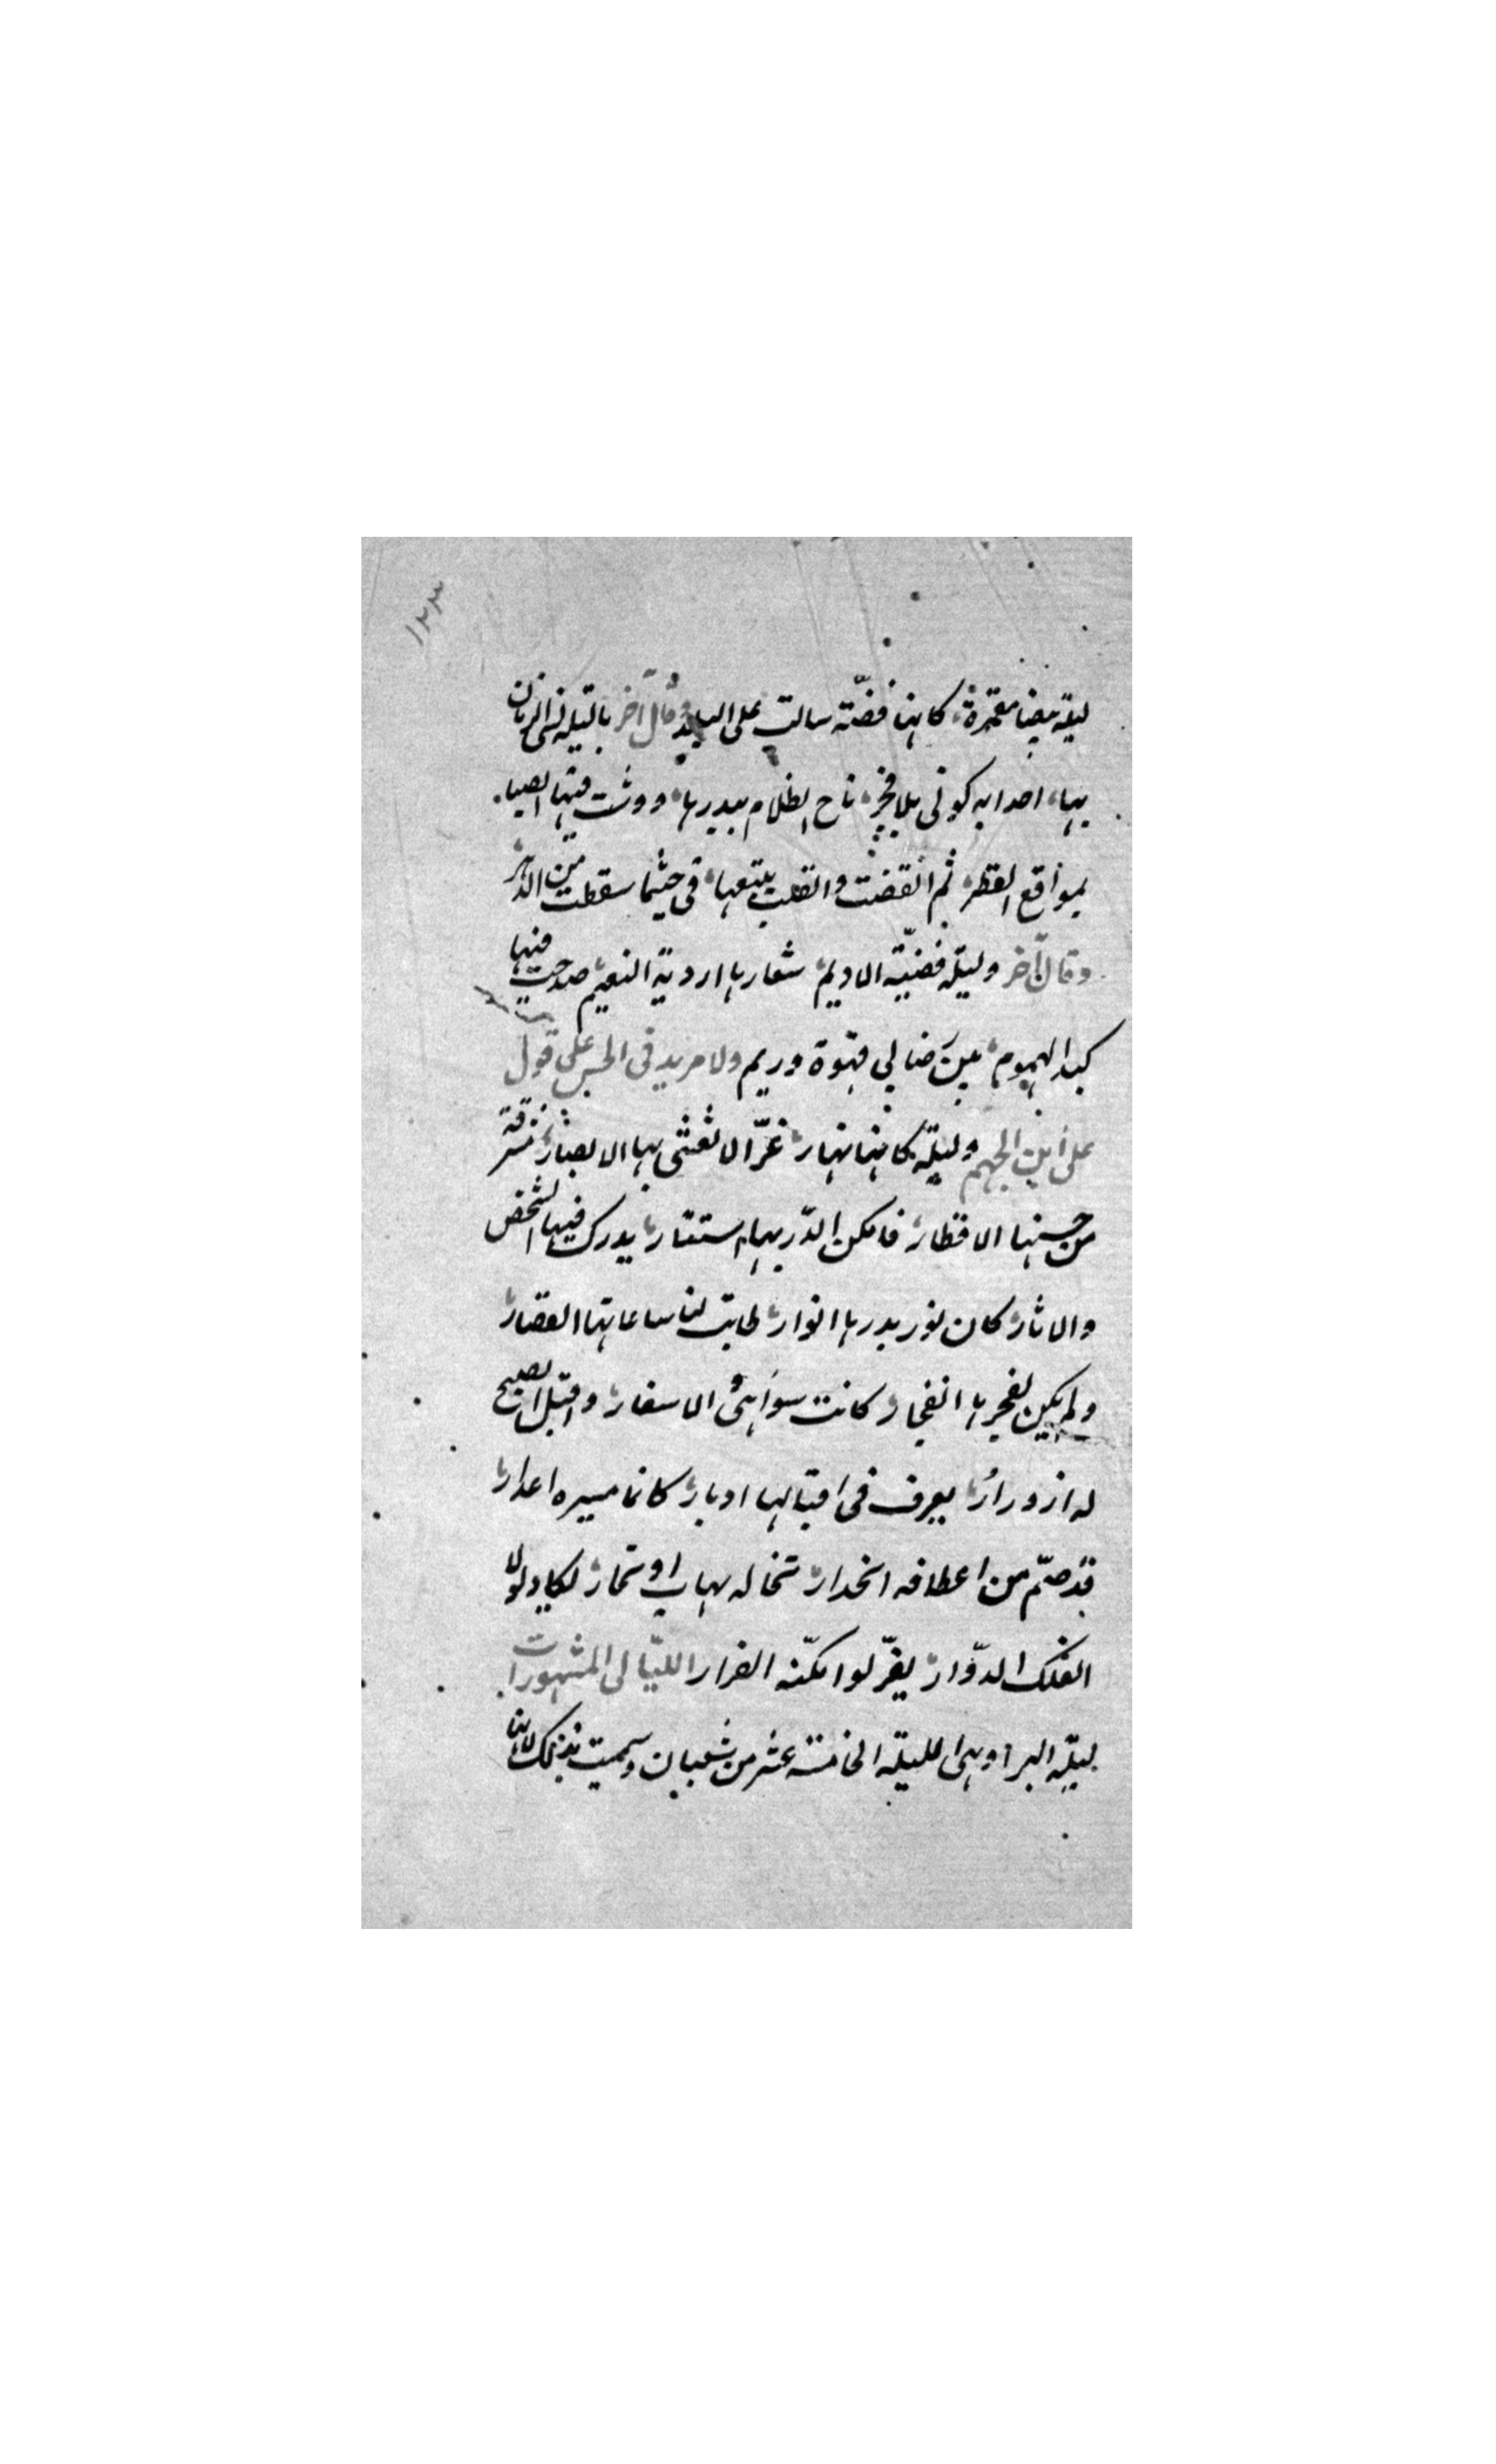 ١٢٣
ليلة بيضا مقمرة كانها فضّة سالت على البلد وقال آخر ياليلة نسى الزمان
بها احداثه كونى بلا فجر ناح الظلام ببدرها ووشت فيها الصبا
بمواقع القطر ثم انقضت والقلب يتبعها فى حيثما سقطت من الدهر
وقال آخر وليلة فضيّة الاديم شعارها اردية النعيم صدحت فيها
كبد الهموم بين رضابى قهوة وريم ولا مزيد فى الحسن على قول
على ابن الجهم وليلة كانها نهار غرّا لا تعشى بها الابصار مشرقة
من حسنها الاقطار فامكن الدّر بها استتار يدرك فيها الشخص
والاثار كان نور بدرها انوار طابت لنا ساعاتها القصار
ولم يكن لفجرها انفجار كانت سواء هى والاسفار واقبل الصبح
له ازورار يعرف فى اقبالها ادبار كانما مسيره اعذار
قد ضمّ من اعطافه انحدار تخاله يهاب او تحار يكاد لولا
الفلك الدوّار يفرّ لو امكنه الفرار الليالى المشهورات
ليلة البراءة وهى الليلة الخامسة عشر من شعبان وسميت بذلك لانها